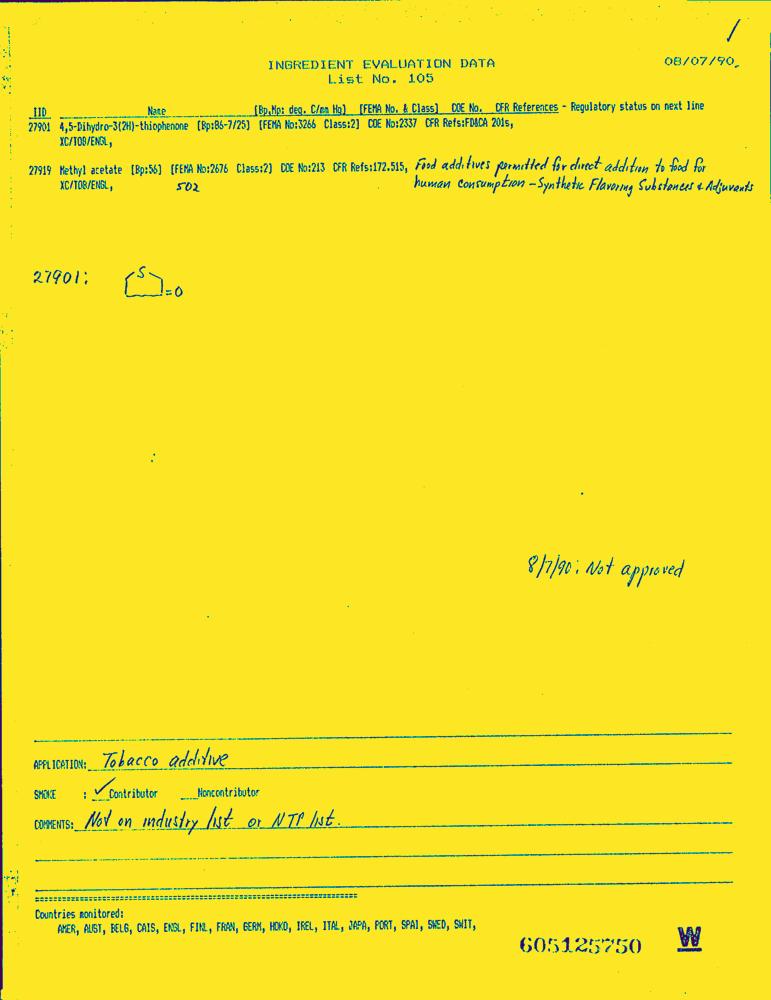 /
08/07/90
INGREDIENT EVALUATION DATA
List No. 105
IID Name [Bp,Mp: deg. C/mm Hg] [FEMA No. & Class] COE No. CFR References - Regulatory status on next line
27901 4,5-Dihydro-3(2H)-thiophenone [Bp:86-7/25] [FEMA No:3266 Class:2] COE No:2337 CFR Refs:FD&CA 201s,
XC/TOB/ENGL,
27919 Methyl acetate [Bp:56] [FEMA No:2676 Class:2] COE No:213 CFR Refs:172.515, Food additives permitted for direct addition to food for
XC/TOB/ENGL, 502 human consumption - Synthetic Flavoring Substances & Adjuvants
27901: S =O
8/7/90: Not approved
APPLICATION: Tobacco additive
SMOKE : ✓ Contributor ___Noncontributor
COMMENTS: Not on industry list or NTP list.
Countries monitored:
AMER, AUST, BELG, CAIS, ENGL, FINL, FRAN, GERM, HOKO, IREL, ITAL, JAPA, PORT, SPAI, SWED, SWIT,
605125750 W